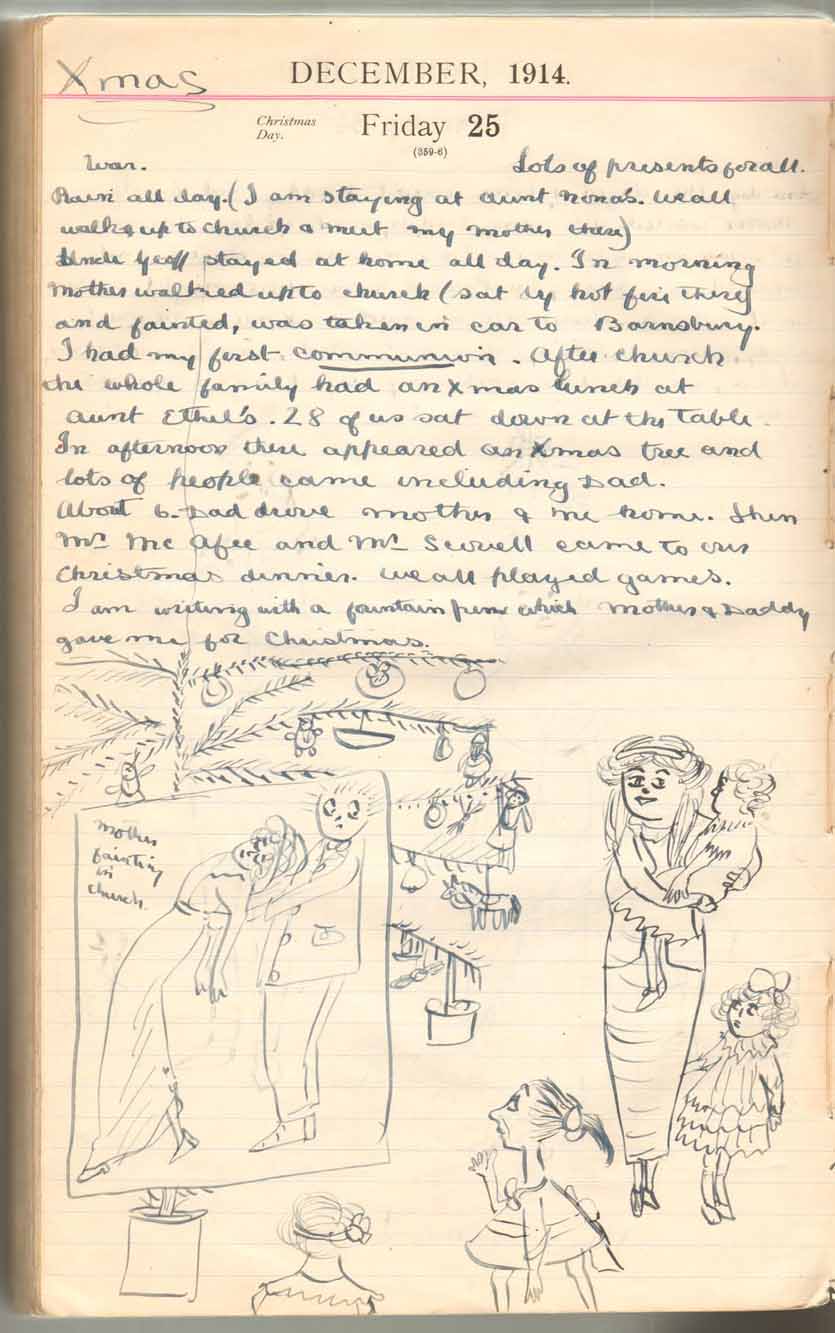 Xmas
DECEMBER, 1914.
Christmas
Day.
Friday 25
(359-6)
War. Lots of presents for all.
Rain all day. (I am staying at aunt Nona's. We all
walk up to church & meet my mother there)
Uncle Geoff stayed at home all day. In morning
Mother walked up to church (sat by hot fire there)
and fainted, was taken in car to Barnsbury.
I had my first communion. After church
the whole family had an Xmas lunch at
aunt Ethel's. 28 of us sat down at the table.
In afternoon there appeared an Xmas tree and
lots of people came including Dad.
About 6. Dad drove mother & me home. Then
Mr Mc Afee and Mr Sewell came to our
Christmas dinner. We all played games.
I am writing with a fountain pen which Mother & Daddy
gave me for Christmas.
Mother
fainting
in
church.